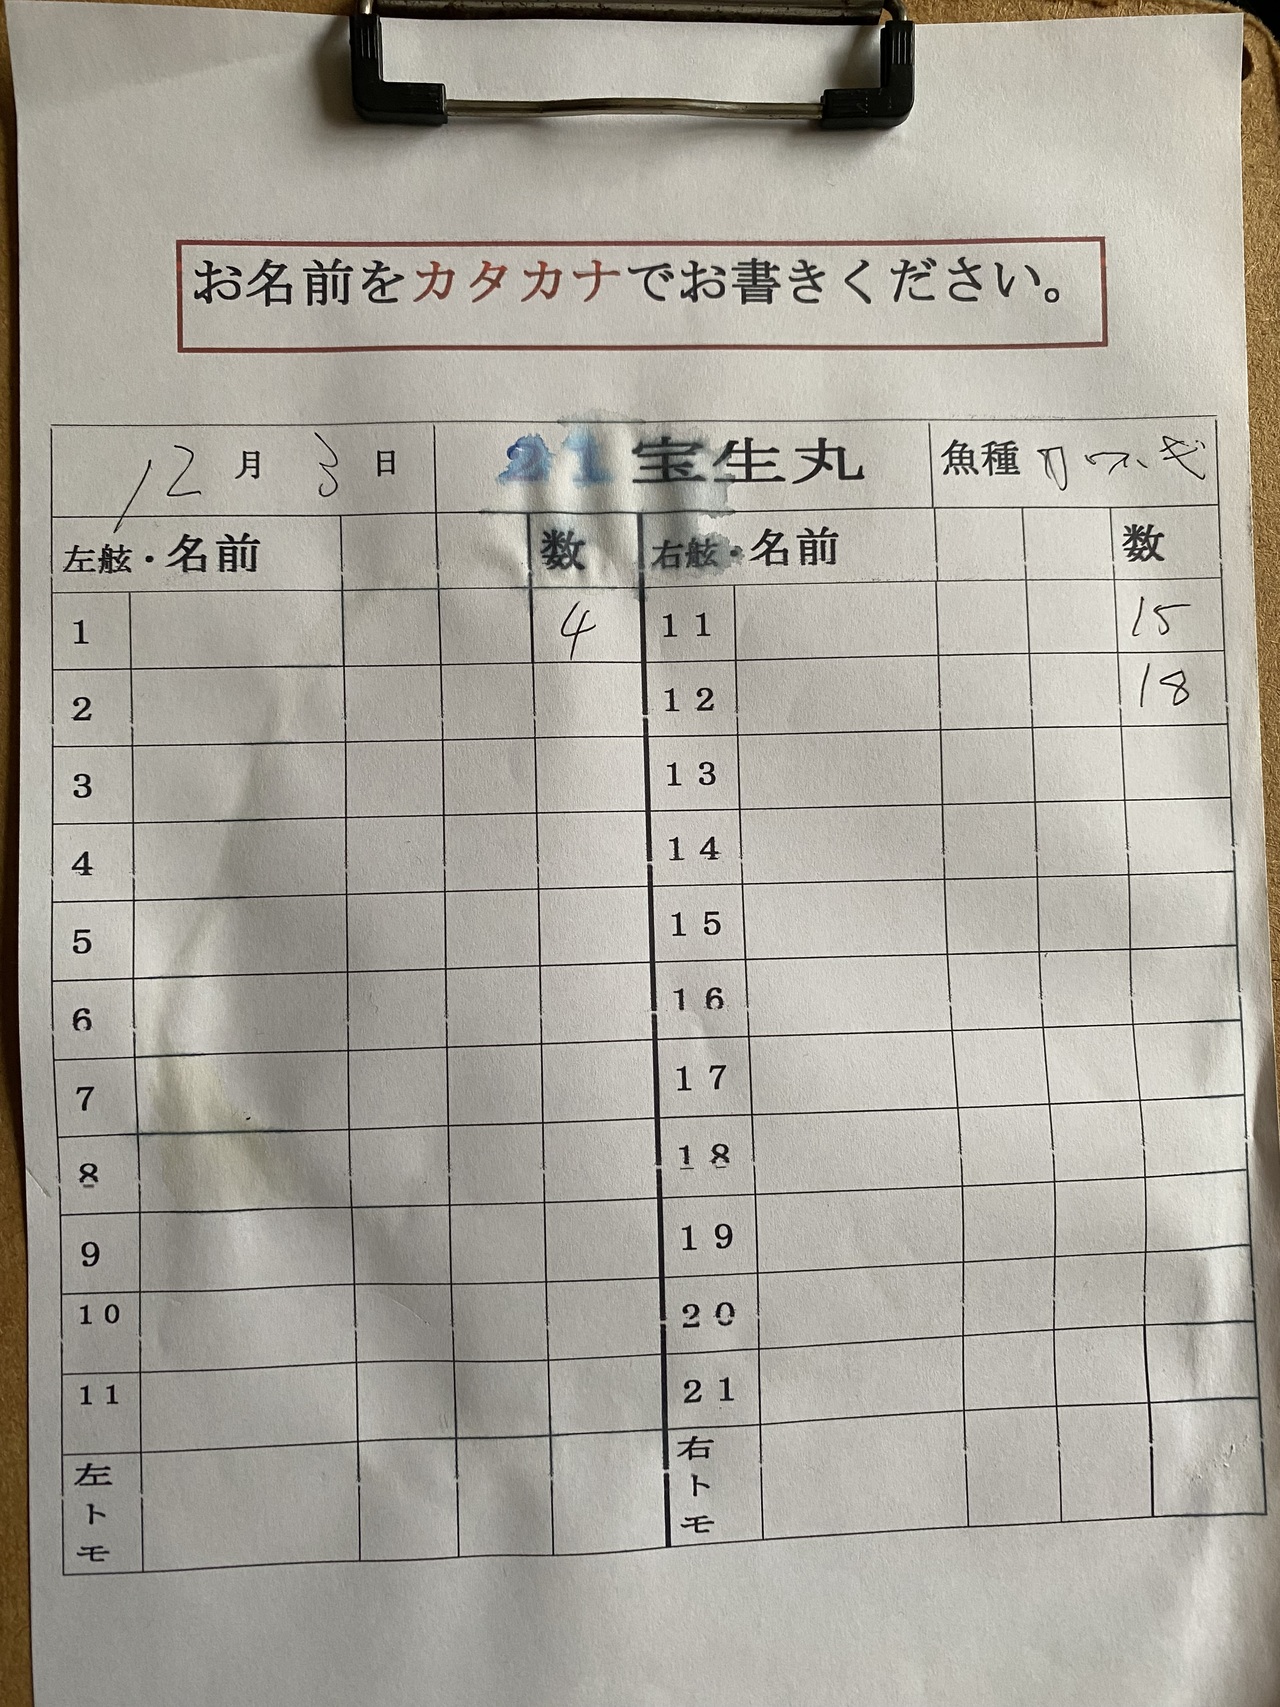 お名前をカタカナでお書きください。
12月 3日 21 宝生丸 魚種 カワハギ
左舷・名前 数 右舷・名前 数
1 4 11 15
2 12 18
3 13
4 14
5 15
6 16
7 17
8 18
9 19
10 20
11 21
左トモ 右トモ